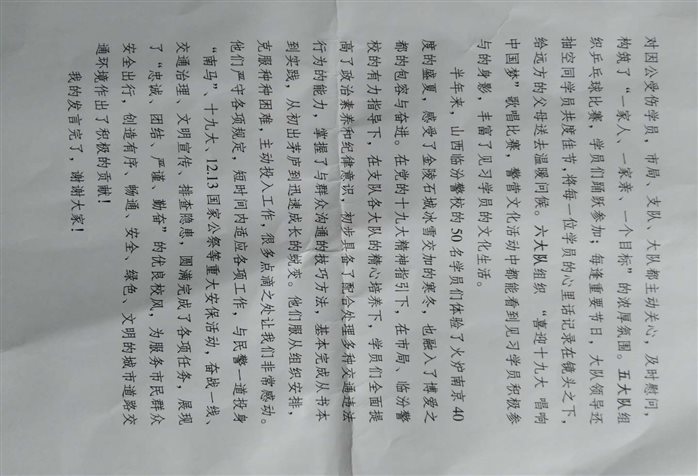 对因公受伤学员，市局、支队、大队都主动关心，及时慰问，
构筑了“一家人、一家亲、一个目标”的浓厚氛围。五大队组
织乒乓球比赛，学员们踊跃参加；每逢重要节日，大队领导还
抽空同学员共度佳节，将每一位学员的心里话记录在镜头之下，
给远方的父母送去温暖问候。六大队组织 “喜迎十九大 唱响
中国梦”歌唱比赛，警营文化活动中都能看到见习学员积极参
与的身影，丰富了见习学员的文化生活。
半年来，山西临汾警校的 50 名学员们体验了火炉南京 40
度的盛夏，感受了金陵石城冰雪交加的寒冬，也融入了博爱之
都的包容与奋进。在党的十九大精神指引下，在市局、临汾警
校的有力指导下，在支队各大队的精心培养下，学员们全面提
高了政治素养和纪律意识，初步具备了配合处理多种交通违法
行为的能力，掌握了与群众沟通的技巧方法，基本完成从书本
到实践，从初出茅庐到迅速成长的蜕变。他们服从组织安排，
克服种种困难，主动投入工作，很多点滴之处让我们非常感动。
他们严守各项规定，短时间内适应各项工作，与民警一道投身
“南马”、十九大、12.13 国家公祭等重大安保活动，奋战一线、
交通治理、文明宣传、排查隐患，圆满完成了各项任务，展现
了“忠诚、团结、严谨、勤奋”的优良校风，为服务市民群众
安全出行，创造有序、畅通、安全、绿色、文明的城市道路交
通环境作出了积极的贡献！
我的发言完了，谢谢大家！